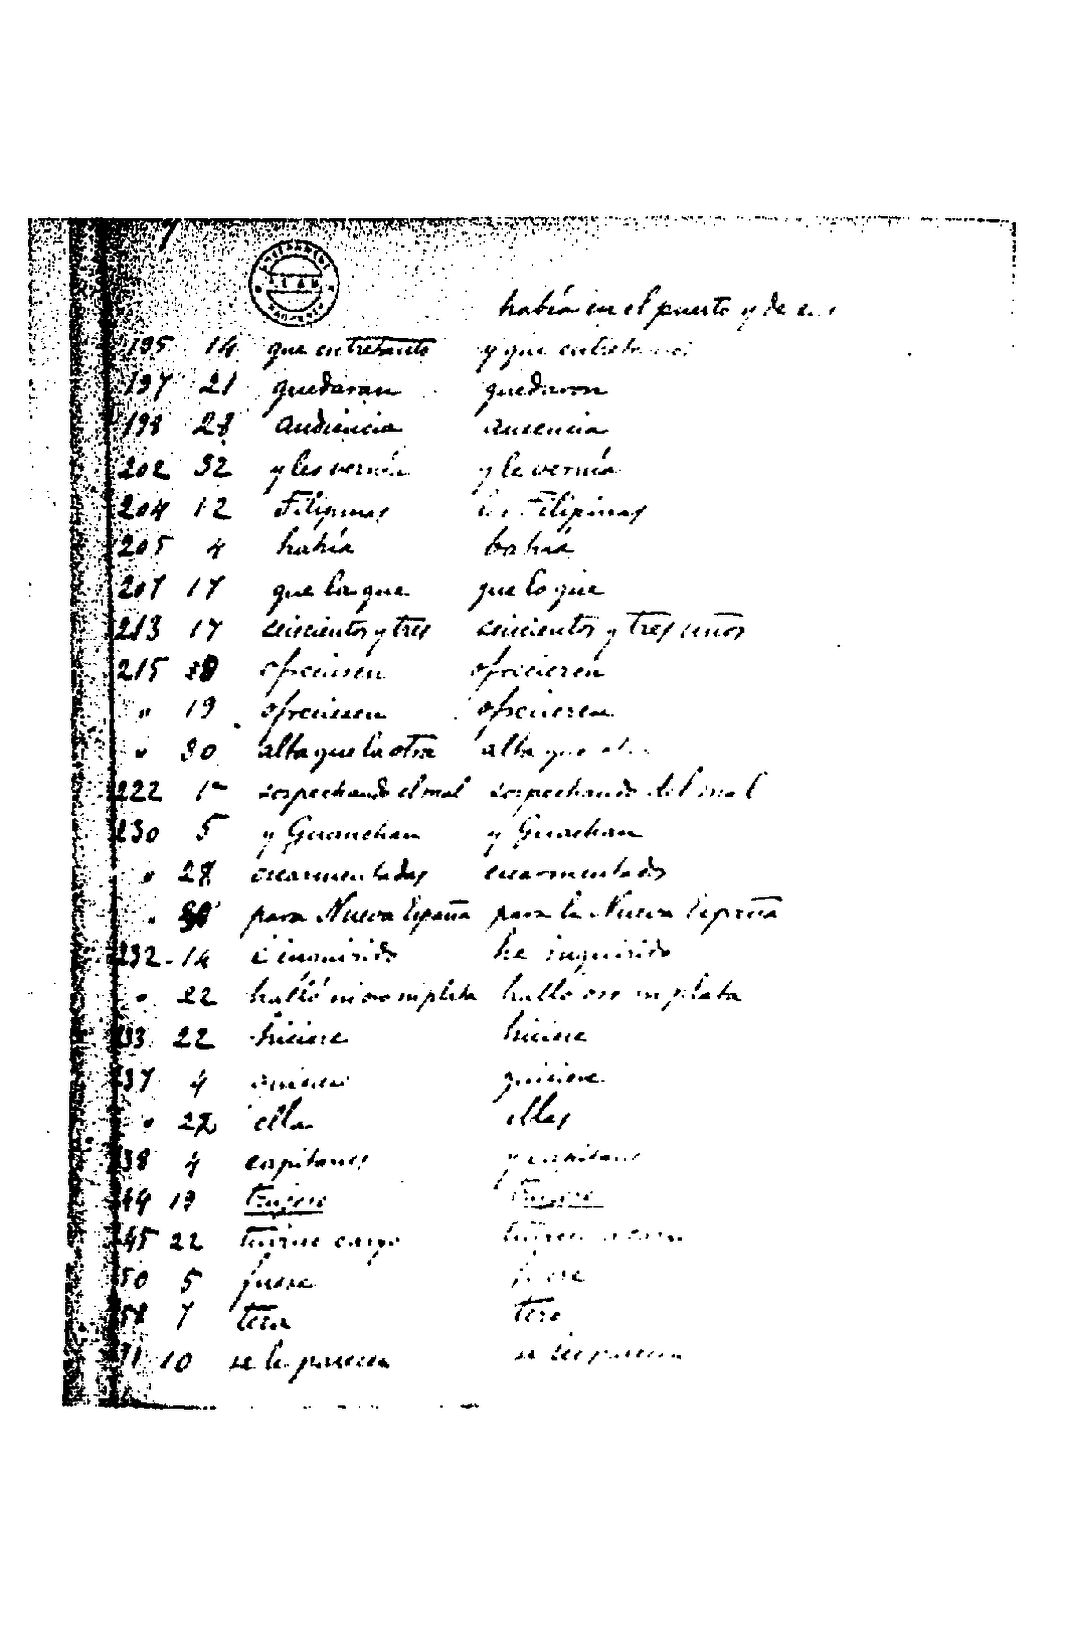 había en el puerto y de
195 14 que entretanto y que
197 21 quedaran quedaron
198 28 audiencia ausencia
202 32 y les vernía y le vernía
204 12 Filipinas Filipinas
205 4 había bahía
207 17 que la que que lo que
213 17 seiscientos y tres seiscientos y tres años
215 ofreciesen ofrecieren
" 19 ofreciesen ofrecieren
" 30 alba que la otra alba que
222 1ª sospechando el mal sospechando del mal
230 5 y Guanchan y Guachan
" 28 escarmentadas escarmentados
" para Nueva España para la Nueva España
232 14 é inquirido he inquirido
" 22 halló ni oro ni plata halló oro ni plata
33 22 hiciese hiciere
37 4 quisiere
" 22 ella ellas
38 4 capitanes y capitanes
44 19 trujese
45 22
50 5 fuese
58 7 tera tero
71 10 se le parecia se les parecia